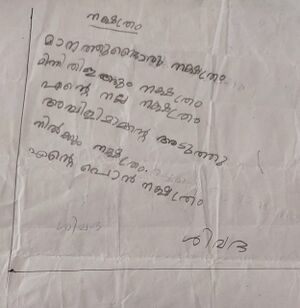 നക്ഷത്രം
മാനത്തുണ്ടൊരു നക്ഷത്രം
മിന്നി തിളങ്ങും നക്ഷത്രം
എന്റെ നല്ല നക്ഷത്രം
അമ്പിളിമാമന്റെ അടുത്തു
നിൽക്കും നക്ഷത്രം.
എന്റെ പൊൻ നക്ഷത്രം
ശിവദ
ശിവദ